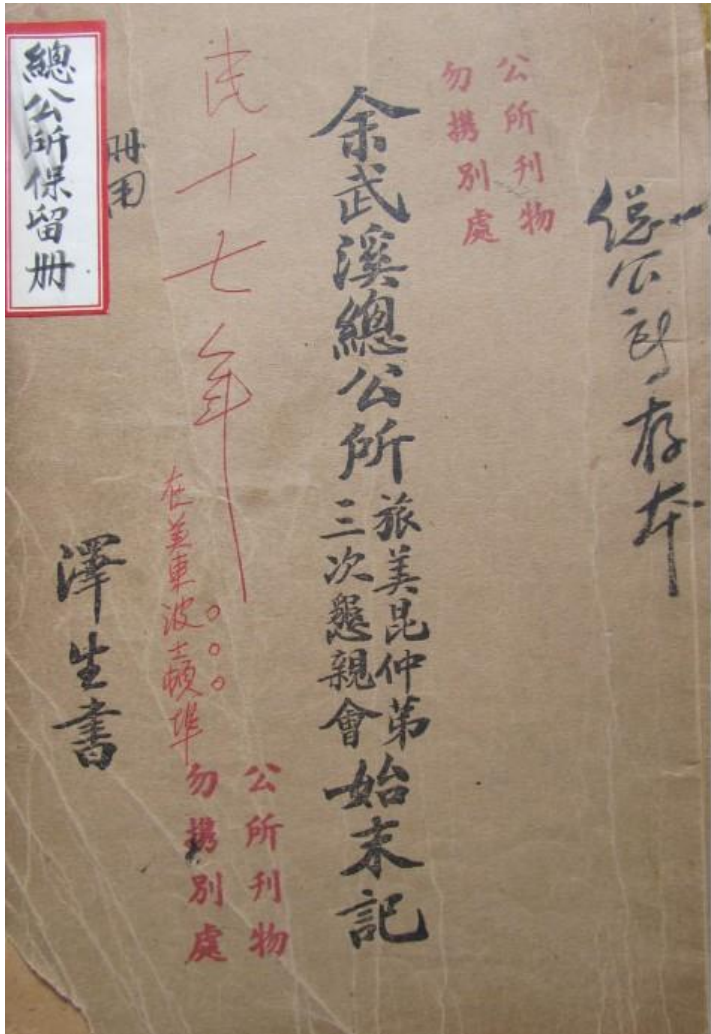 總公所存本
公所刊物
勿携別處
余武溪總公所旅美昆仲第三次懇親會始末記
公所刊物
勿携別處
民十七年
在美東波士頓埠
澤生書
冊用
總公所保留冊